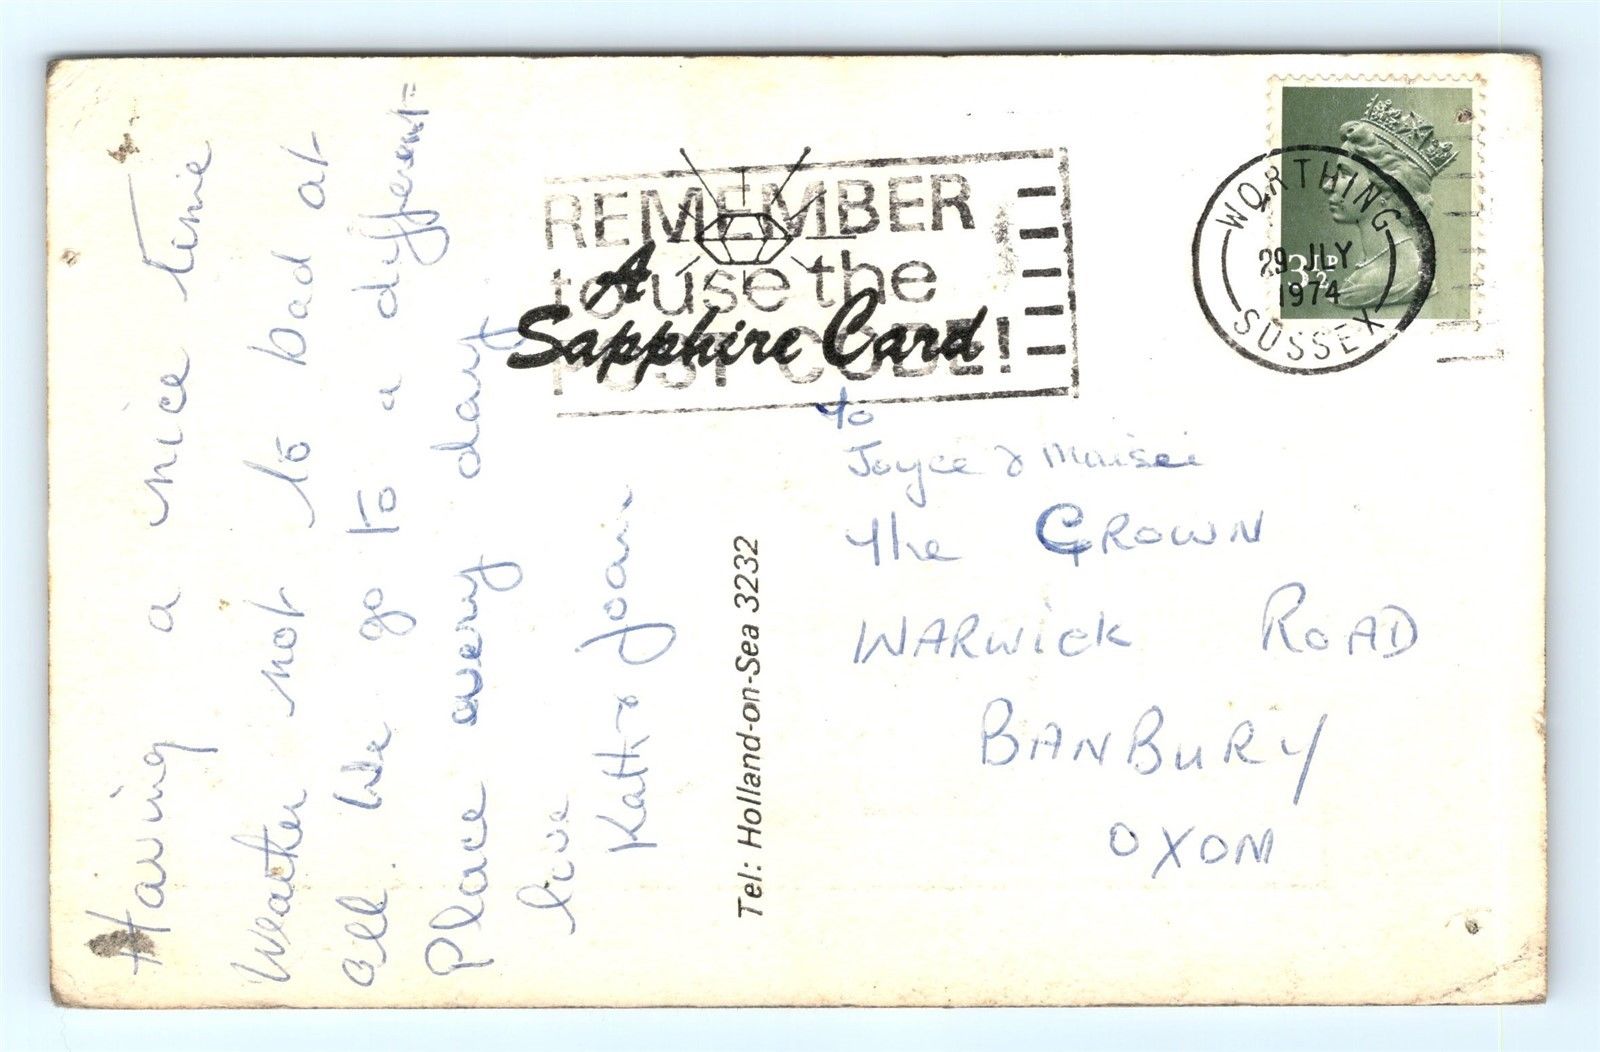 Having a nice time
Weather not to bad at
all. We go to a different
Place every day
love
Kath & Joan
REMEMBER
to use the
POST CODE!
A
Sapphire Card
Tel: Holland-on-Sea 3232
WORTHING
29 JLY
1974
SUSSEX
3½P
To
Joyce & Maisei
The CROWN
WARWick ROAD
BANBURY
OXON